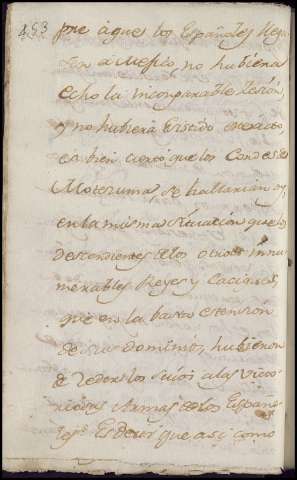 453
pre à que los Españoles llega
sen a Mexico, no hubiera
echo la incomparable Cesión,
y no hubiera Existido
es bien cierto que los Condes de
Motezuma, se hallarian oy,
en la misma situación que los
descendientes de los otros innu
merables Reyes y Caciques,
que en la basta estension
de su dominio, hubieron
de Zeder los suios a las Victo
riosas Armas de los Españo
les. Es decir que asi como